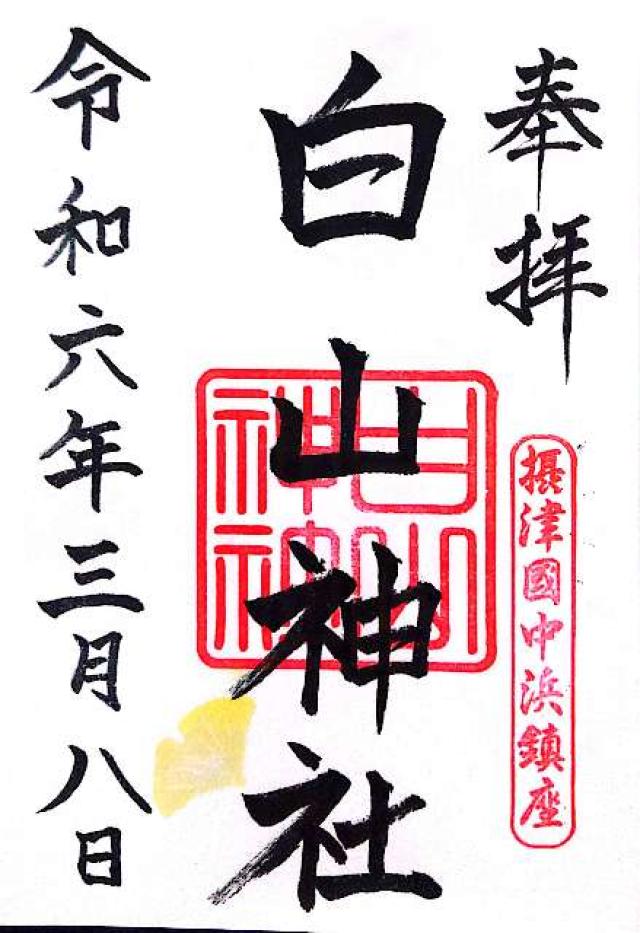 奉拝
摂津國中浜鎮座
白山神社
令和六年三月八日